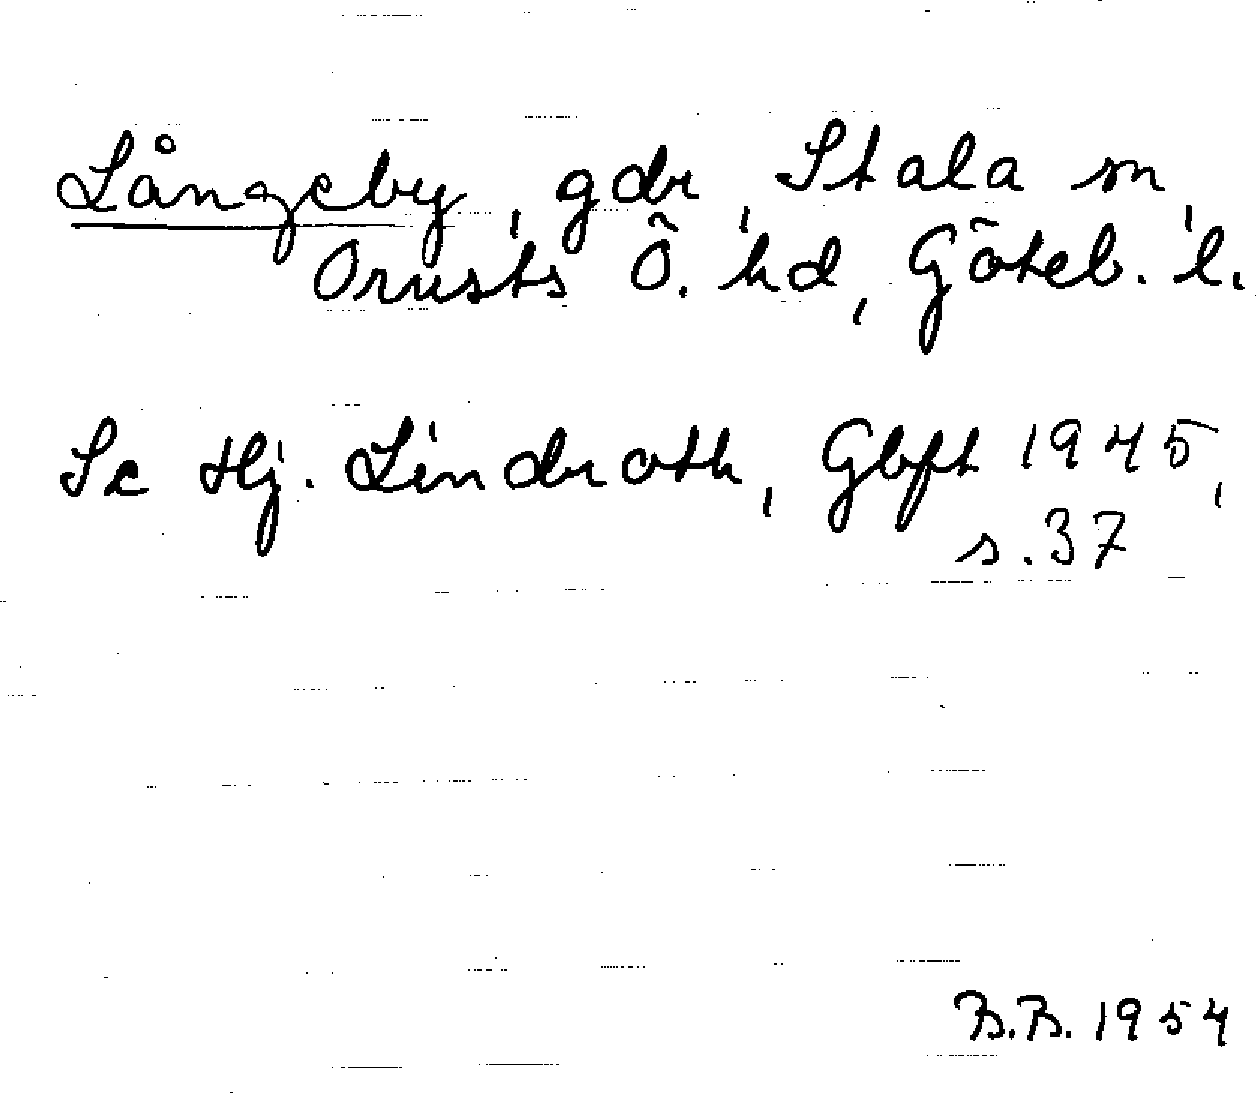 Långeby, gdr, Stala sn,
Orusts Ö. hd, Göteb. l.
Se Hj. Lindroth, Gbft 1945,
s. 37
B.B. 1954